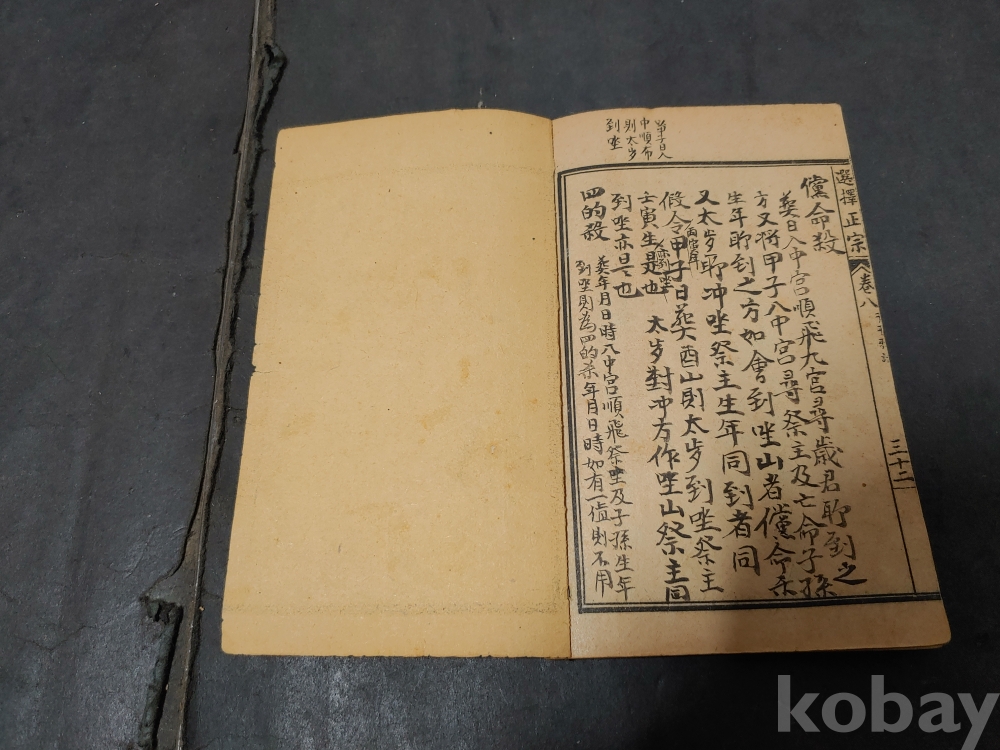 選擇正宗
卷八
三十二
甲子日入
中順布
則太歩
到坐
儻命殺
葬日入中宮順飛九宮尋歲君所到之
方又将甲子入中宮尋祭主及亡命子孫
生年所到之方如會到坐山者儻命杀
又太歩所冲坐祭主生年同到者同
假令甲子日葬酉山則太歩到坐祭主
壬寅生是也 太歩對冲方作坐山祭主同
到坐亦是也
四的殺 葬年月日時入中宮順飛祭主及子孫生年
到坐則為四的杀年月日時如有一值則不用
kobay